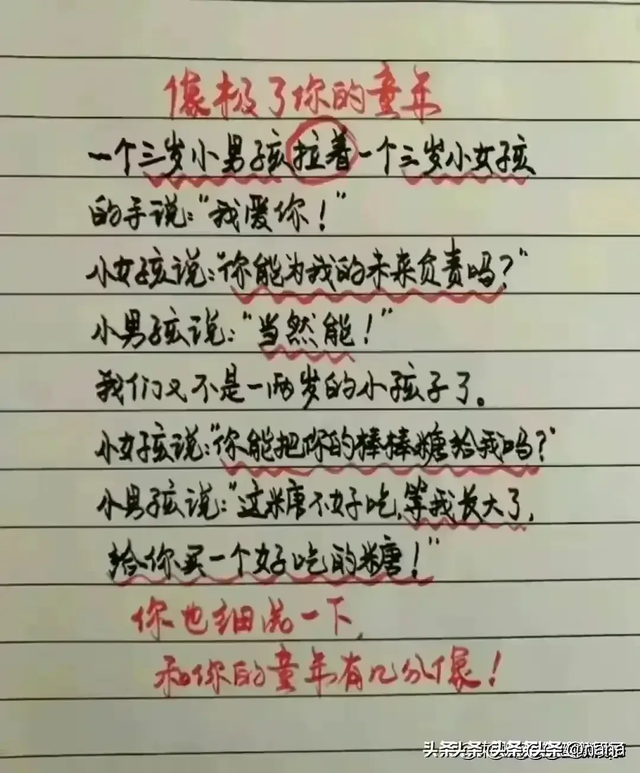 像极了你的童年
一个三岁小男孩拉着一个三岁小女孩
的手说:“我爱你!”
小女孩说:“你能为我的未来负责吗?”
小男孩说:“当然能!”
我们又不是一两岁的小孩子了。
小女孩说:“你能把你的棒棒糖给我吗?”
小男孩说:“这糖不好吃,等我长大了,
给你买一个好吃的糖!”
你也细品一下,
和你的童年有几分像!
头条 @nana